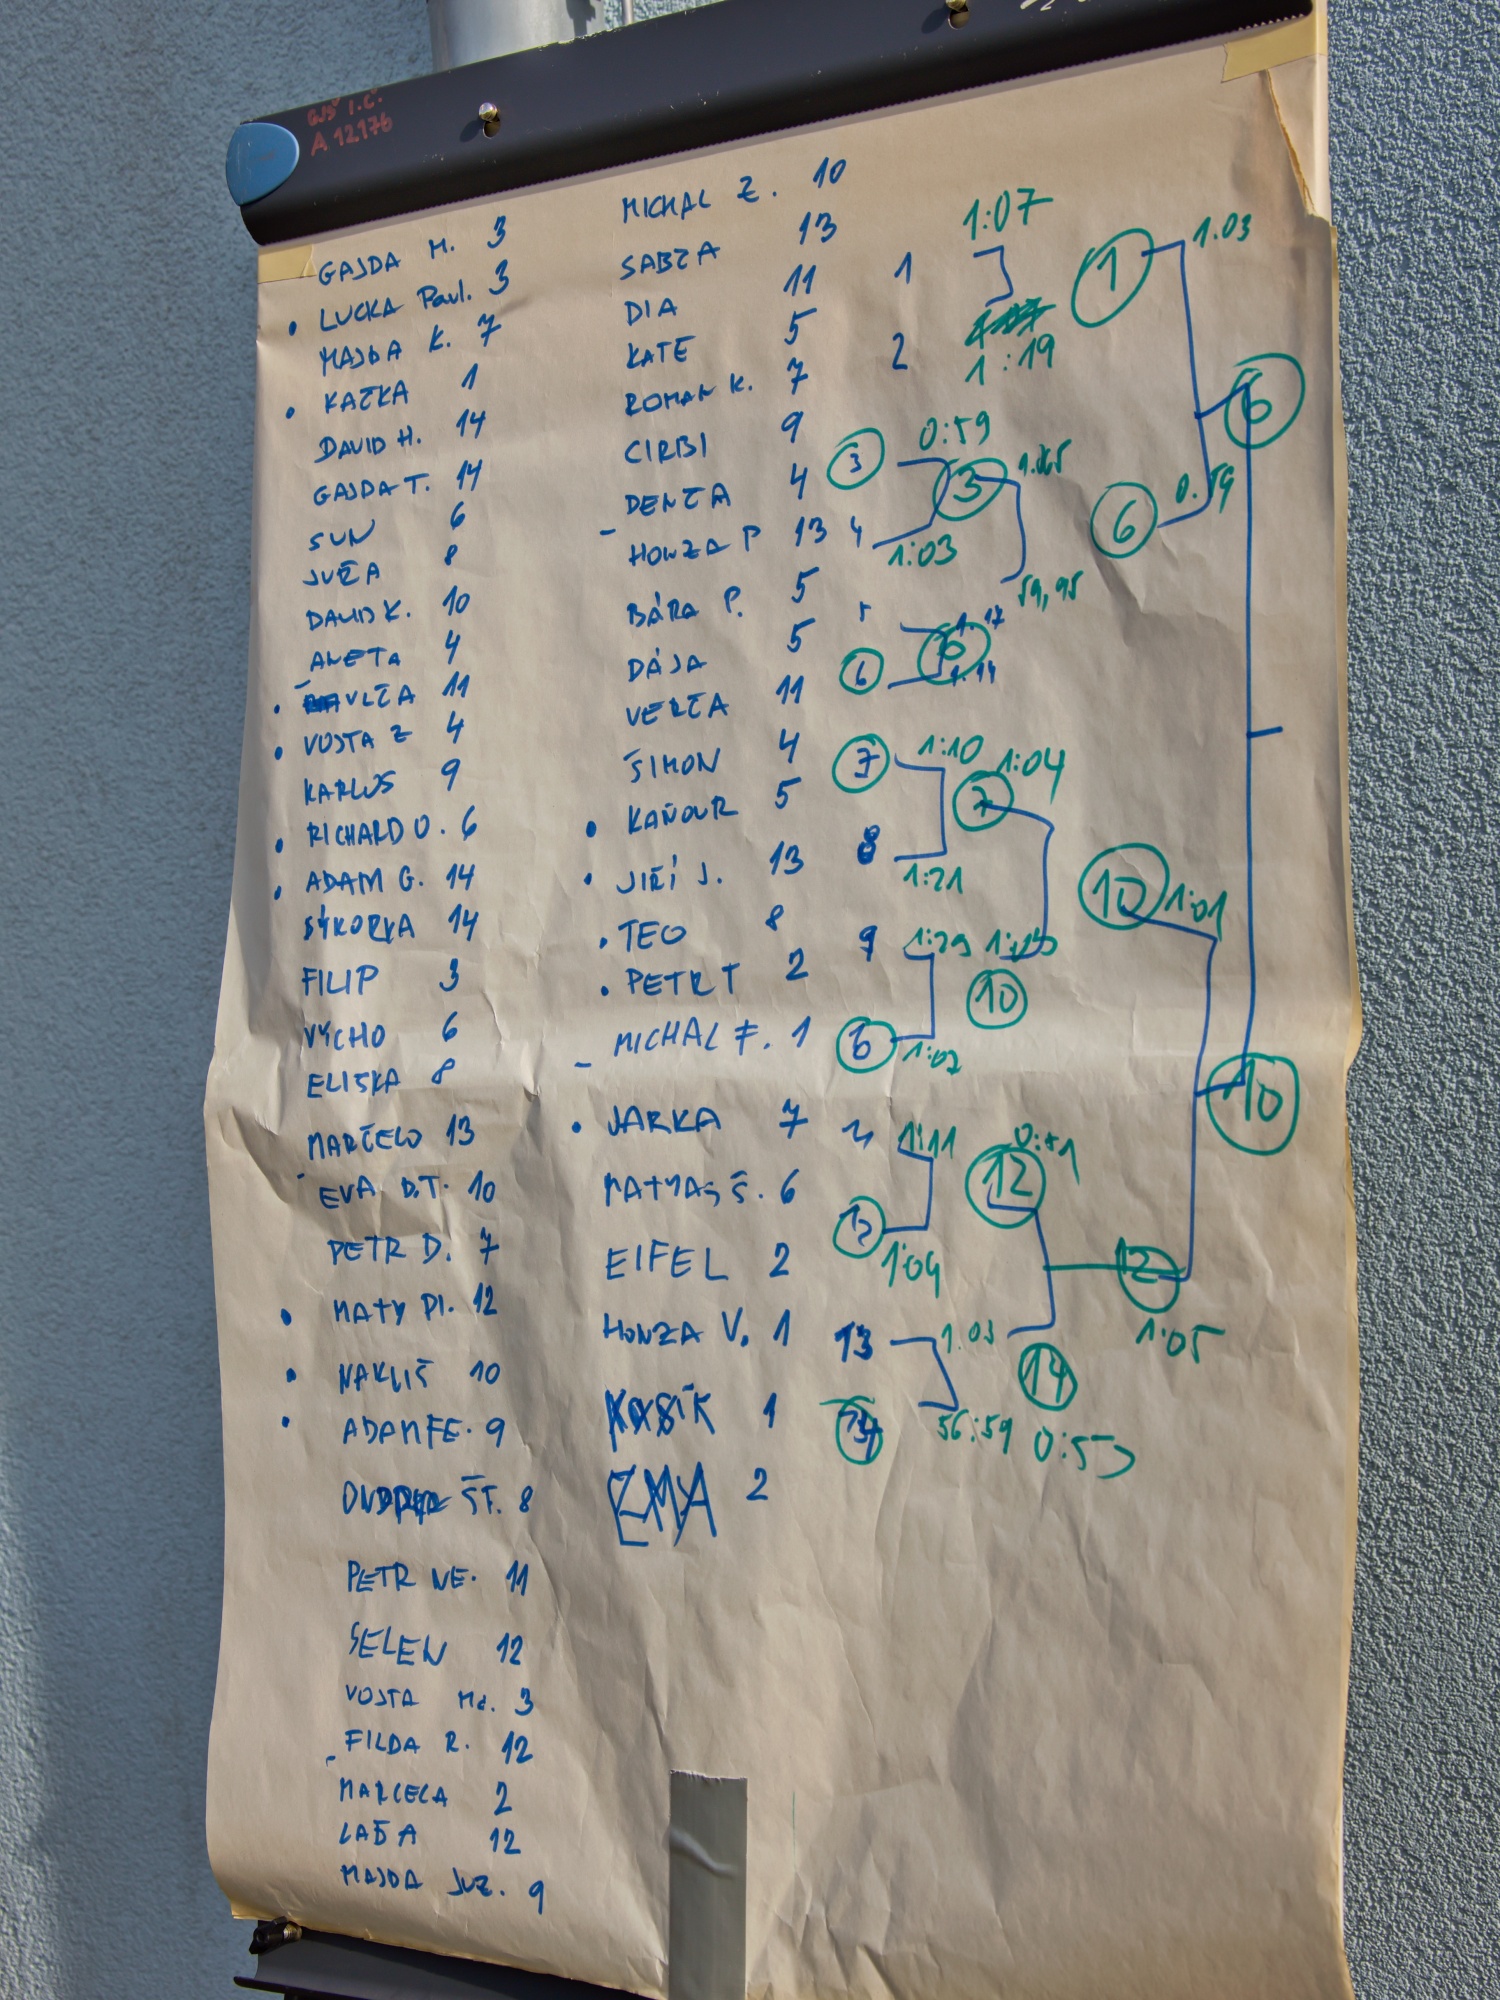 GJŠ I.Č.
A 12176
GAJDA M. 3
LUCKA Paul. 3
MAJDA K. 7
KAČKA 1
DAVID H. 14
GAJDA T. 14
SUN 6
JUČA 8
DAVID K. 10
ANETA 4
VLČA 11
VOJTA Z 4
KARLOS 9
RICHARD O. 6
ADAM G. 14
SÝKORKA 14
FILIP 3
VÝCHO 6
ELIŠKA 8
MARČELO 13
EVA D.T. 10
PETR D. 7
MATY PI. 12
NAKLIŠ 10
ADAM FE. 9
ŠT. 8
PETR NE. 11
SELEN 12
VOJTA Md. 3
FILDA R. 12
MARCELA 2
LAĎA 12
MAJDA JUZ. 9
MICHAL Z. 10
SABČA 13
DIA 11
KATE 5
ROMAN K. 7
CIRBI 9
DENČA 4
HONZA P 13
BÁRA P. 5
DÁJA 5
VERČA 11
ŠIMON 4
KAŇOUR 5
JIŘÍ J. 13
TEO 8
PETR T 2
MICHAL F. 1
JARKA 7
MATYAS Š. 6
EIFEL 2
HONZA V. 1
KOSÍK 1
EMA 2
1 1:07
2 1:19
3 0:59
4 1:03
6
7 1:10
8 1:21
9 1:29
1:02
1:11
12 1:04
13 1.03
56:59
3
59,95
6
7 1:04
10
12
14 0:53
1 1.03
6 0.59
10 1:01
12 1:05
6
10